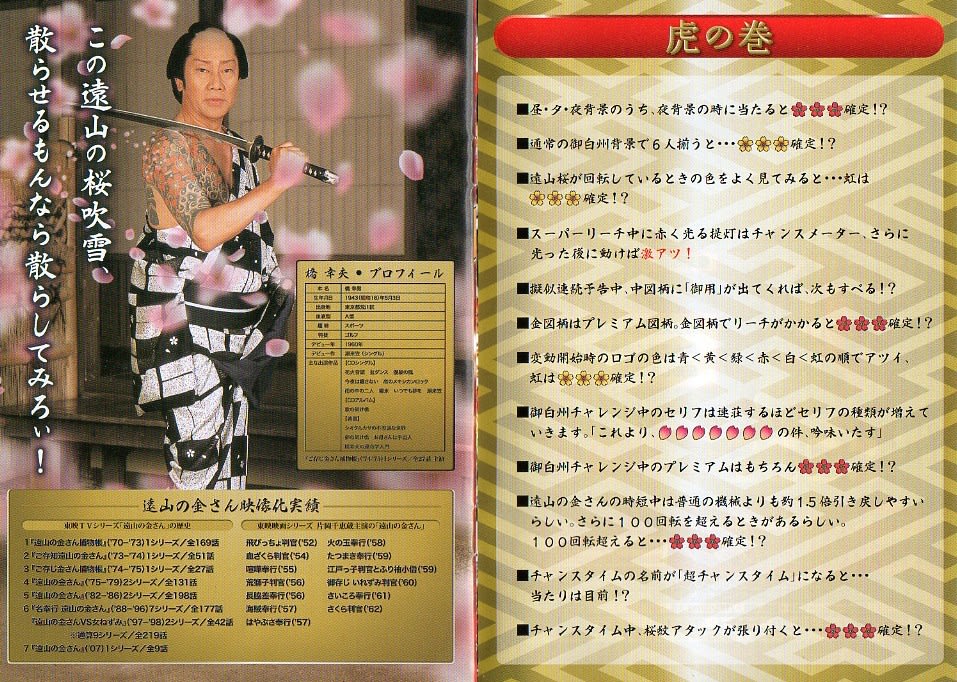 この遠山の桜吹雪、
散らせるもんなら散らしてみろぃ!
橋 幸夫・プロフィール
本 名 橋 幸男
生年月日 1943(昭和18)年5月3日
出身地 東京都荒川区
血液型 A型
趣 味 スポーツ
特技 ゴルフ
デビュー年 1960年
デビュー作 潮来笠(シングル)
主な出演作品 【CDシングル】
【CDアルバム】
遠山の金さん映像化実績
東映TVシリーズ「遠山の金さん」の歴史
1『遠山の金さん捕物帳』('70~'73)1シリーズ/全169話
2『ご存知遠山の金さん』('73~'74)1シリーズ/全51話
3『ご存じ金さん捕物帳』('74~'75)1シリーズ/全27話
4『遠山の金さん』('75~'79)2シリーズ/全131話
5『遠山の金さん』('82~'86)2シリーズ/全198話
6『名奉行 遠山の金さん』('88~'96)7シリーズ/全177話
『遠山の金さんVS女ねずみ』('97~'98)2シリーズ/全42話
※通算9シリーズ/全219話
7『遠山の金さん』('07)1シリーズ/全9話
東映映画シリーズ 片岡千恵蔵主演の「遠山の金さん」
飛びっちょ判官('52)
血ざくら判官('54)
喧嘩奉行('55)
荒獅子判官('56)
長脇差奉行('56)
海賊奉行('57)
はやぶさ奉行('57)
火の玉奉行('58)
たつまき奉行('59)
江戸っ子判官とふり袖小僧('59)
御存じ いれずみ判官('60)
さいころ奉行('61)
さくら判官('62)
虎の巻
■昼・夕・夜背景のうち、夜背景の時に当たると確定!?
■通常の御白州背景で6人揃うと・・・確定!?
■遠山桜が回転しているときの色をよく見てみると・・・虹は
確定!?
■スーパーリーチ中に赤く光る提灯はチャンスメーター、さらに
光った後に動けば激アツ!
■擬似連続予告中、中図柄に「御用」が出てくれば、次もすべる!?
■金図柄はプレミアム図柄。金図柄でリーチがかかると確定!?
■変動開始時のロゴの色は青<黄<緑<赤<白<虹の順でアツイ、
虹は確定!?
■御白州チャレンジ中のセリフは連荘するほどセリフの種類が増えて
いきます。「これより、の件、吟味いたす」
■御白州チャレンジ中のプレミアムはもちろん確定!?
■遠山の金さんの時短中は普通の機械よりも約1.5倍引き戻しやすい
らしい。さらに100回転を超えるときがあるらしい。
100回転超えると・・・確定!?
■チャンスタイムの名前が「超チャンスタイム」になると・・・
当たりは目前!?
■チャンスタイム中、桜紋アタックが張り付くと・・・確定!?